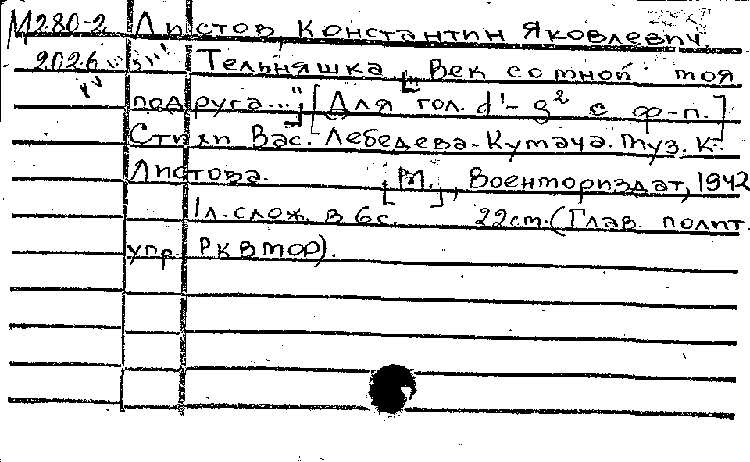 М280-2 Листов, Константин Яковлевич
2026 Тельняшка. ["Век со мной моя
подруга..."] [Для гол. d¹-g² с ф-п.]
Стихи Вас. Лебедева-Кумача. Муз. К.
Листова. [М.], Военмориздат, 1942
1 л. слож. в 6 с. 22 см. (Глав. полит.
упр. РКВМФ).